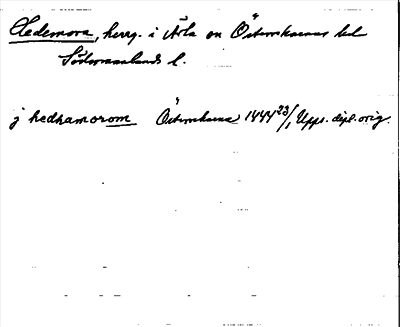 Hedemora, herrg. i Årla sn Österrekarnes hd
Södermanlands l.
j hedhamorom Österrekarne 1444 23/1 Upps. dipl. orig.